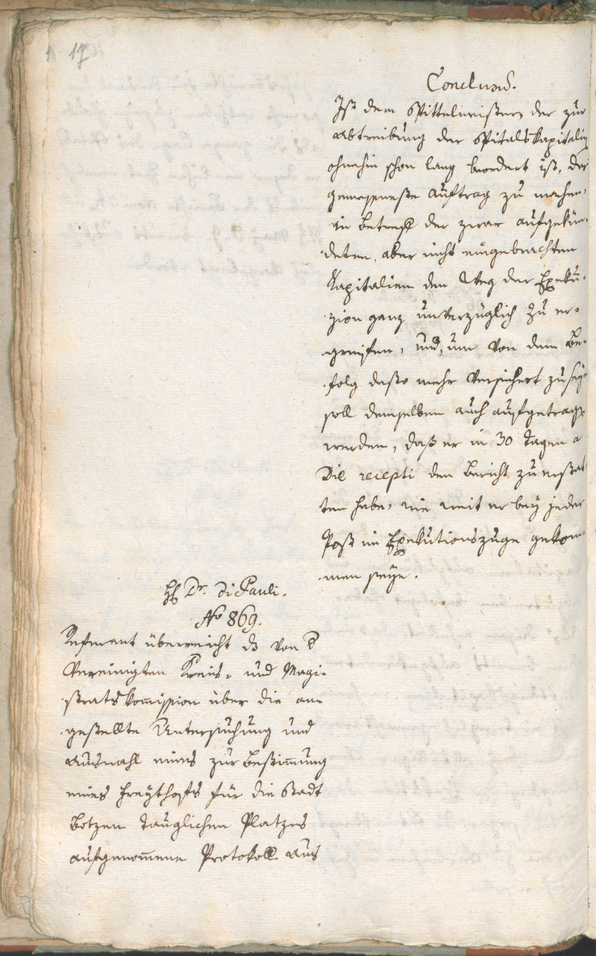 17
Conclusum.
Ist dem Spittelmeister, der zur
Abtreibung der Spitalskapitalien
ohnehin schon lang beordert ist, der
gemessenste Auftrag zu machen,
in Betreff der zwar aufgekün-
deten, aber nicht eingebrachten
Kapitalien den Weg der Exeku-
zion ganz unverzüglich zu er-
greifen, und, um von dem Be-
folg desto mehr versichert zu seyn
soll demselben auch aufgetragen
werden, daß er in 30 Tagen a
Die recepti den Bericht zu erstat
ten habe, wie weit er bey jeder
Post im Exekutionszuge gekom-
men seye.
H. Dr. Di Pauli.
No 869.
Referent überreicht das von der
Vereinigten Kreis- und Magi-
stratskommission über die an-
gestellte Untersuchung und
Auswahl eines zur Bestimmung
eines Freythofs für die Stadt
Botzen tauglichen Platzes
aufgenommene Protokoll. Aus